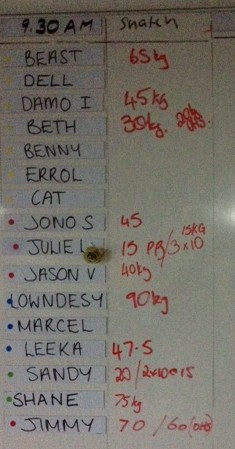 9.30 AM Snatch
BEAST 65kg
DELL
DAMO I 45kg
BETH 30kg.
BENNY
ERROL
CAT
JONO S 45
15KG
JULIE L 15 PB/3x10
JASON V 40kg
LOWNDESY 90kg
MARCEL
LEEKA 47.5
SANDY 20/2x10@15
SHANE 75kg
JIMMY 70 / 60